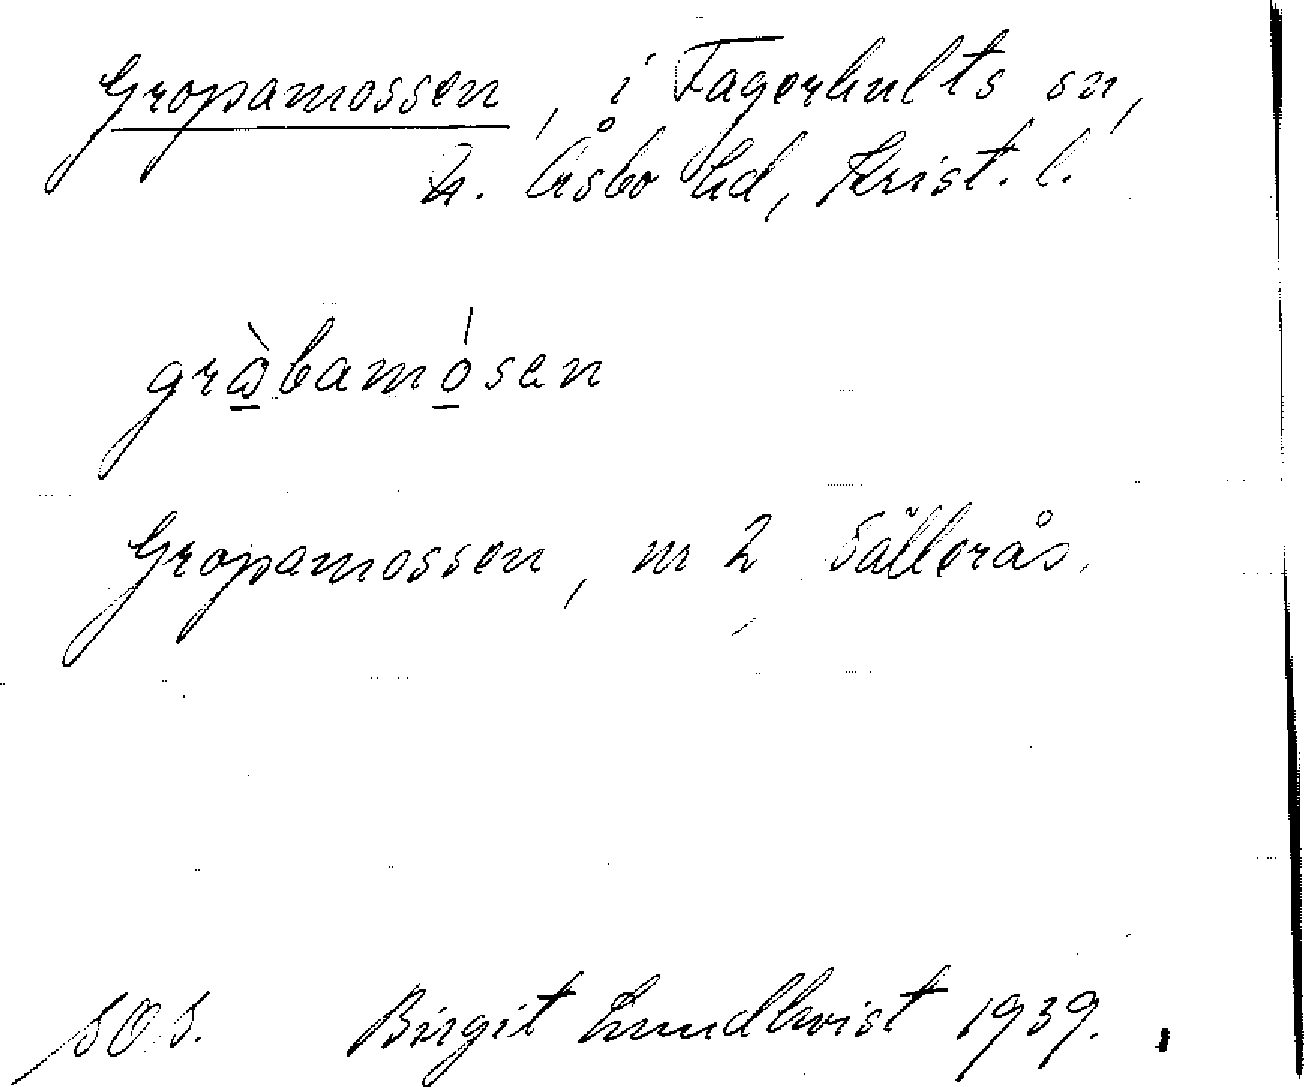 Gropamossen, i Fagerhults sn,
N. Åsbo hd, Krist. l.
gràbamósen
Gropamossen, nr 2 Sällerås.
SOS. Birgit Lundkvist 1939.